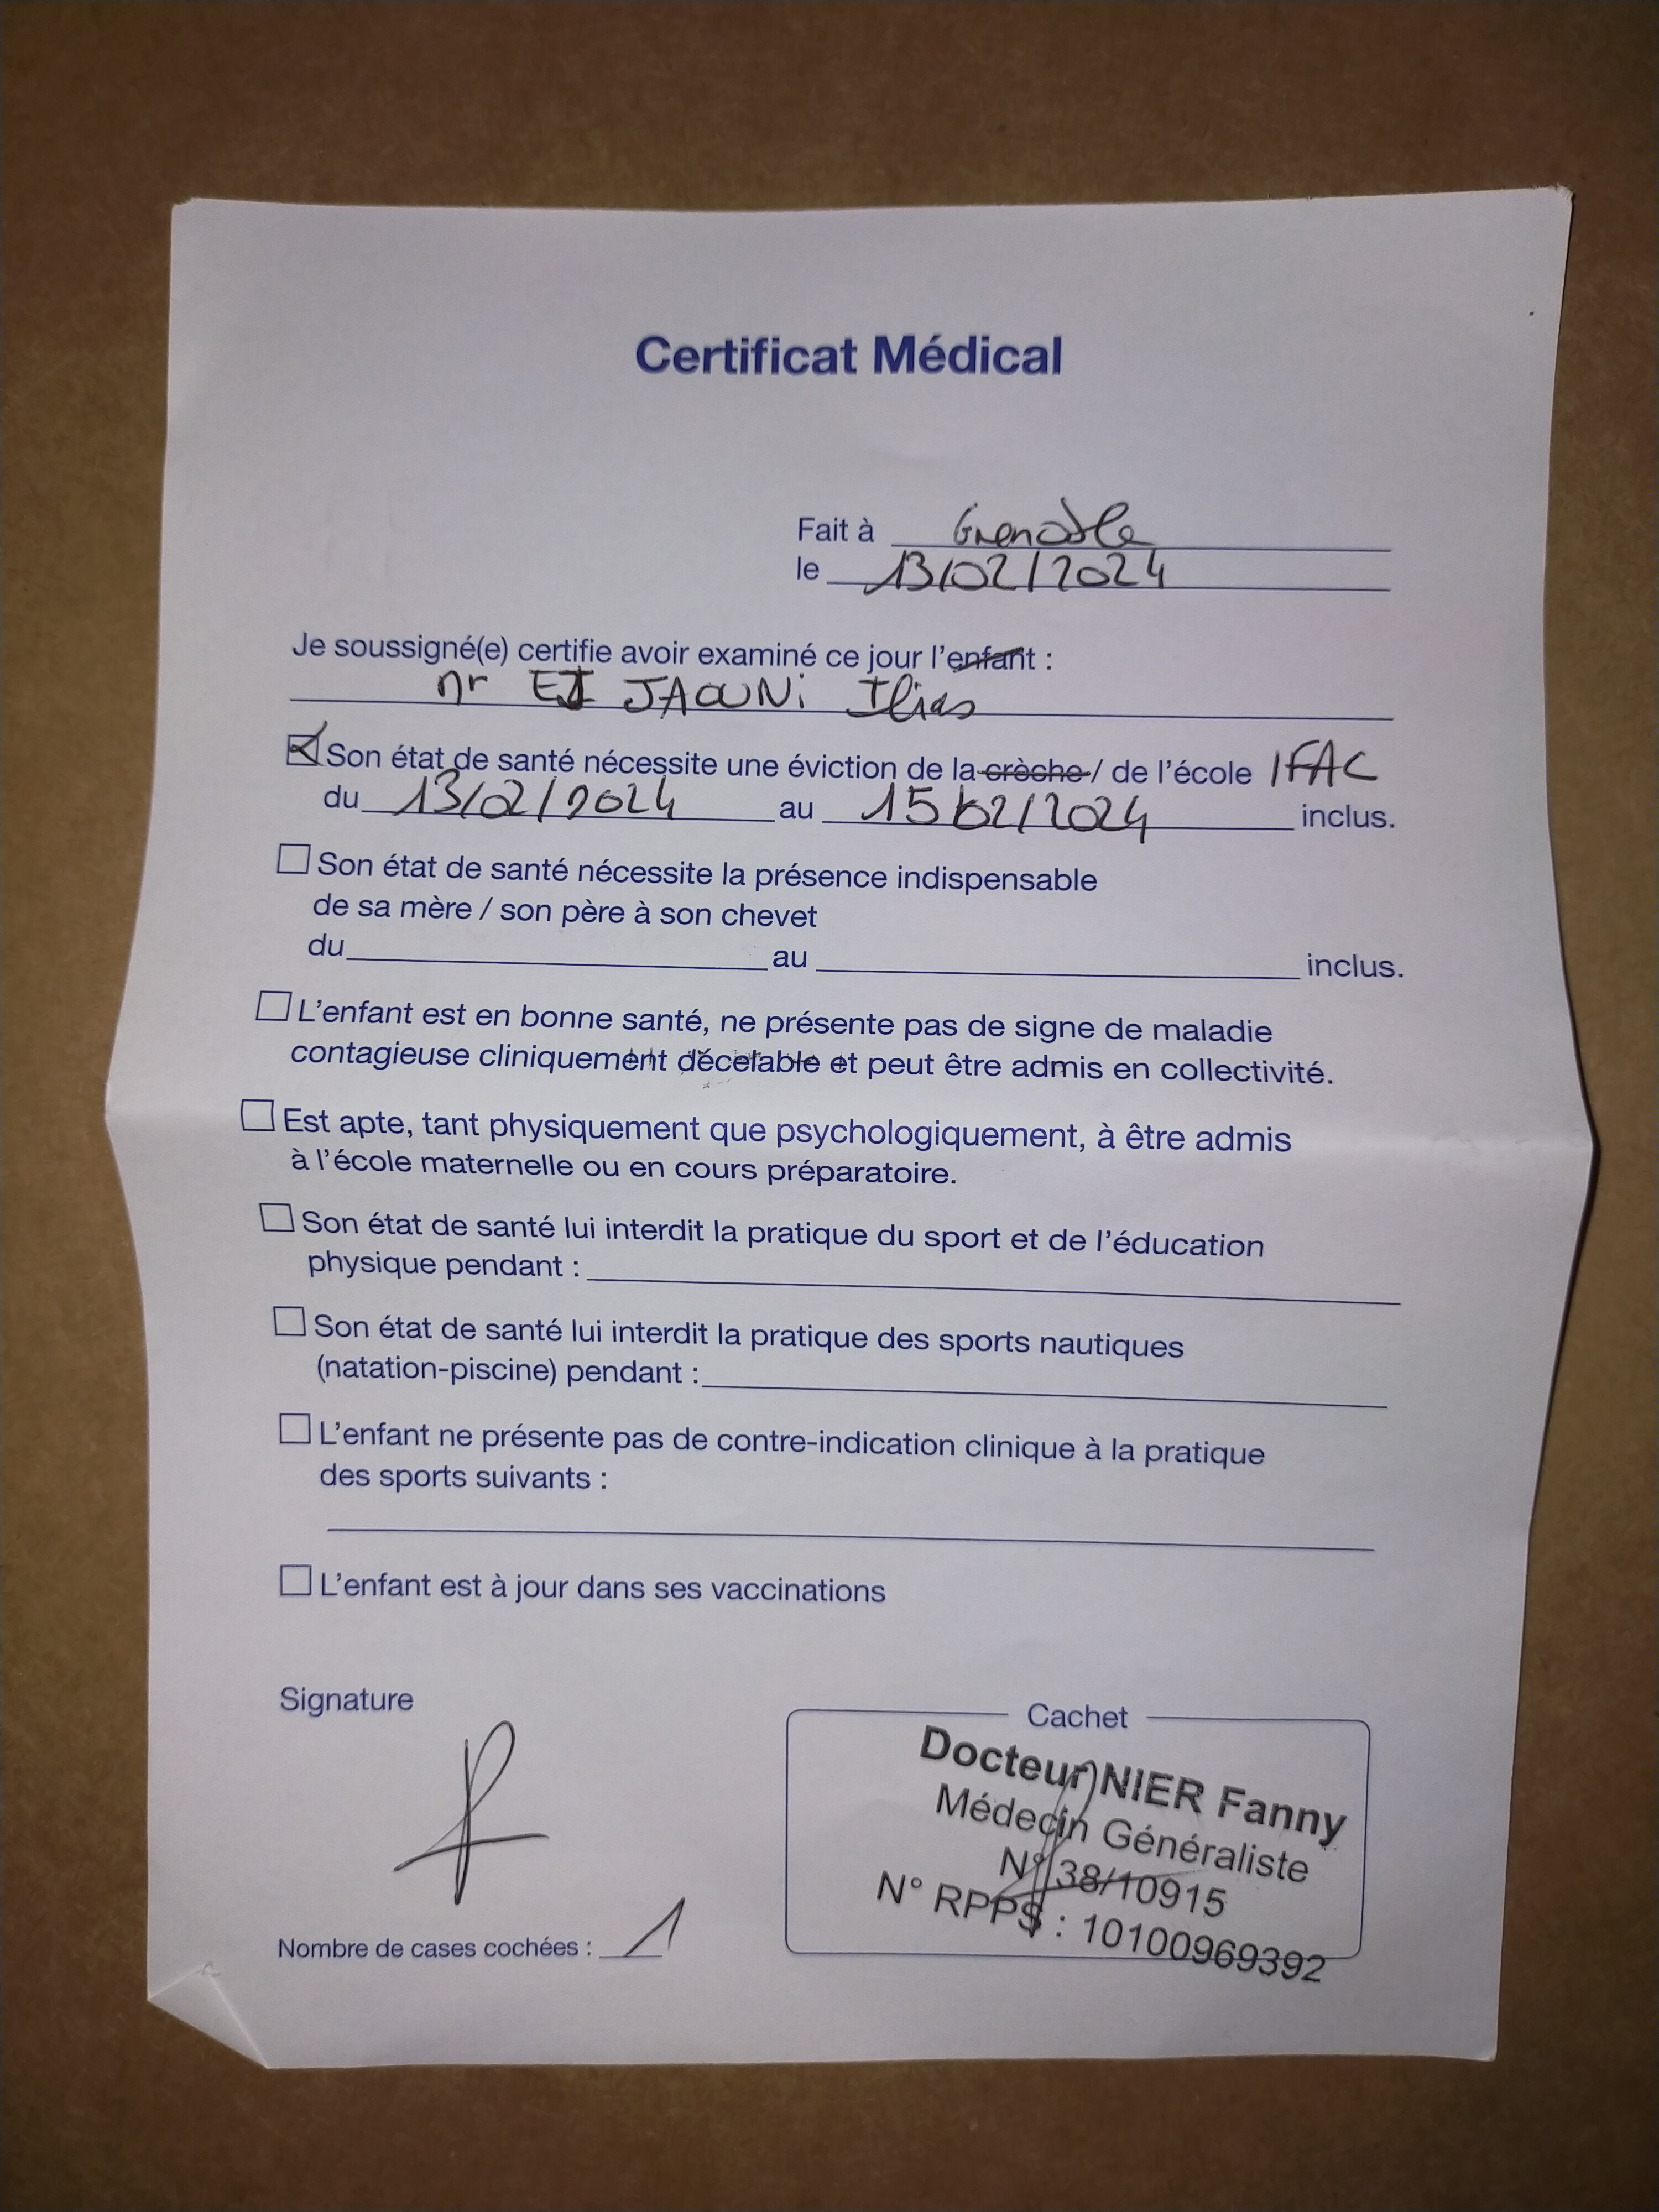 Certificat Médical
Fait à Grenoble
le 13/02/2024
Je soussigné(e) certifie avoir examiné ce jour l'enfant :
Mr EJ JAOUNi Ilias
Son état de santé nécessite une éviction de la crèche / de l'école IFAC
du 13/02/2024 au 15/02/2024 inclus.
Son état de santé nécessite la présence indispensable
de sa mère / son père à son chevet
du au inclus.
L'enfant est en bonne santé, ne présente pas de signe de maladie
contagieuse cliniquement décelable et peut être admis en collectivité.
Est apte, tant physiquement que psychologiquement, à être admis
à l'école maternelle ou en cours préparatoire.
Son état de santé lui interdit la pratique du sport et de l'éducation
physique pendant :
Son état de santé lui interdit la pratique des sports nautiques
(natation-piscine) pendant :
L'enfant ne présente pas de contre-indication clinique à la pratique
des sports suivants :
L'enfant est à jour dans ses vaccinations
Signature
Nombre de cases cochées : 1
Cachet
Docteur NIER Fanny
Médecin Généraliste
N° 38/10915
N° RPPS : 10100969392